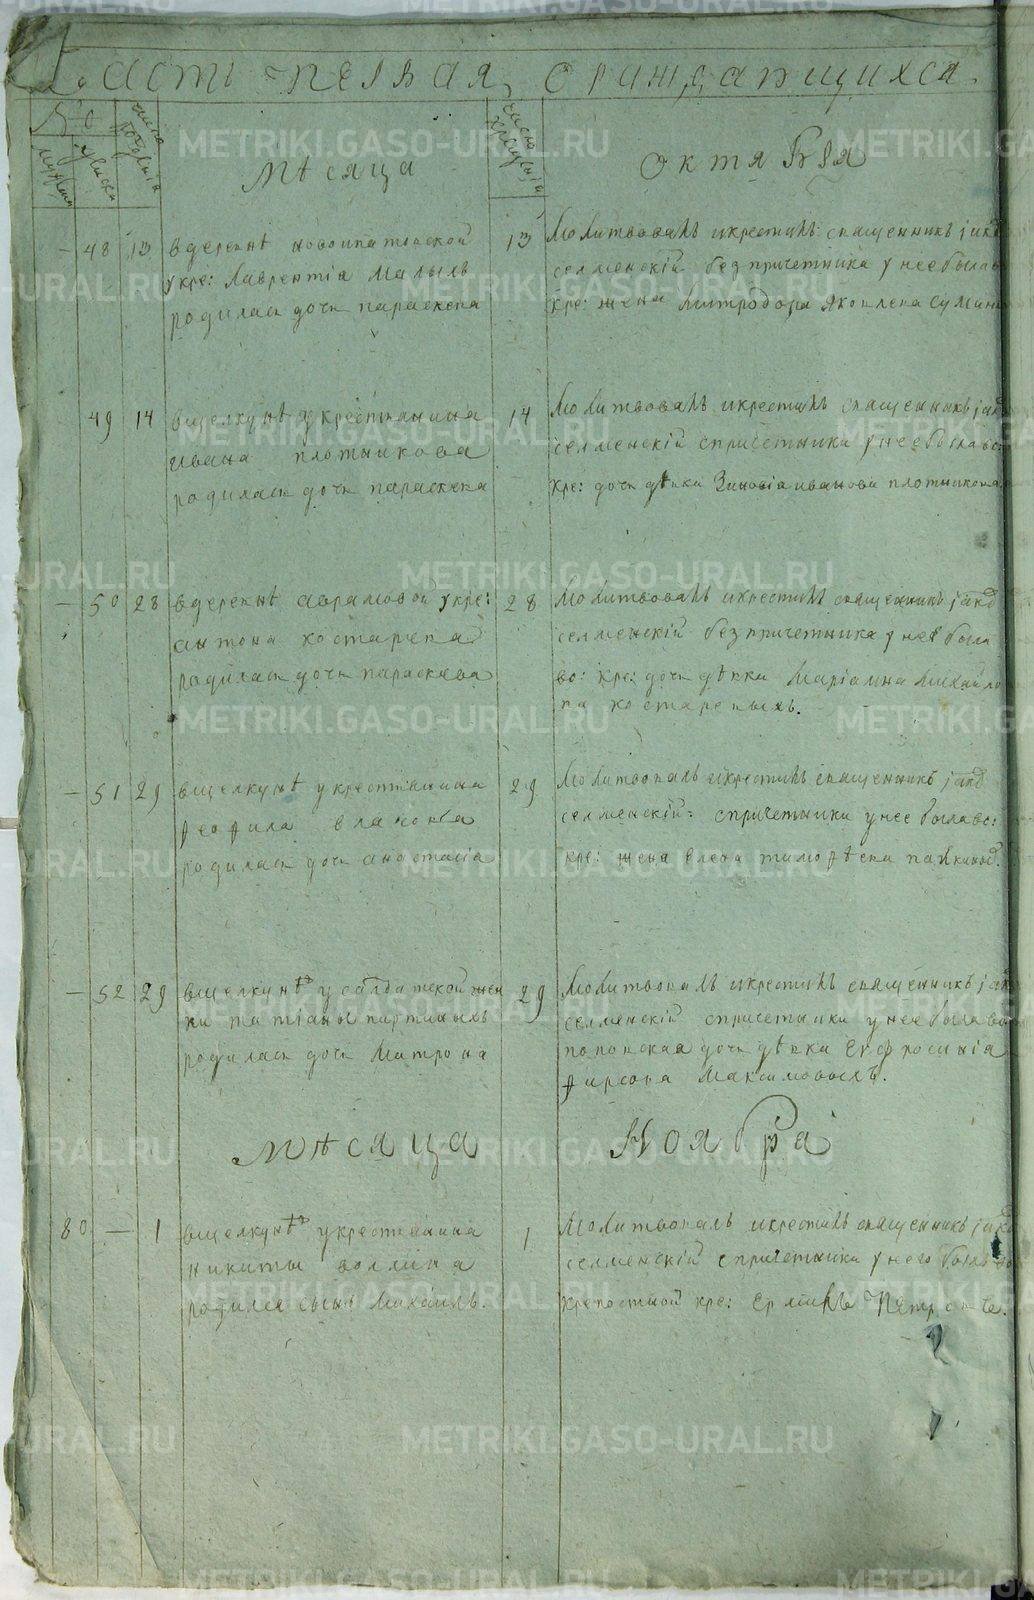 Часть первая, о раждающихся.
№
мужеска
женска
число рожденія
Мѣсяца
число крещенія
октября
48 13 в деревнѣ новоипатовской
у кре: Лаврентія Малыхъ
родилась дочь параскева
13 Молитвовалъ и крестилъ священникъ
селменскій без причетника у нее была в
кре: жена Митродора Яковлева
49 14 вщелкунѣ у крестіанина
ивана плотникова
родилась дочь параскева
14 Молитвовалъ и крестилъ священникъ
селменскій спричетники у нее была вос:
кре: дочь дѣвка Зиновіа иванова плотникова
50 28 в деревнѣ аврамовой у кре:
антона костарева
родилась дочь параскева
28 Молитвовалъ и крестилъ священникъ
селменскій без причетника у нее была
во: кре: дочь дѣвка Маріамна Михайло
ва костаревыхъ.
51 29 вщелкунѣ у крестіанина
ѳеофила влахова
родилась дочь анастасіа
29 Молитвовалъ и крестилъ священникъ
селменскій: спричетники у нее была вос:
кре: жена Елена тимоѳѣева
52 29 вщелкунѣ у салдатской жен
ки татіаны
родилась дочь Матрона
29 Молитвовалъ и крестилъ священникъ
селменскій спричетники у нее была во
поповская дочь дѣвка Евфросиніа
ѳирсова Максимовыхъ.
Мѣсяца Ноября
80 — 1 вщелкунѣ у крестіанина
никиты
родился сынъ Михаилъ.
1 Молитвовалъ и крестилъ священникъ
селменскій спричетники у него былъ во
крепостной кре: